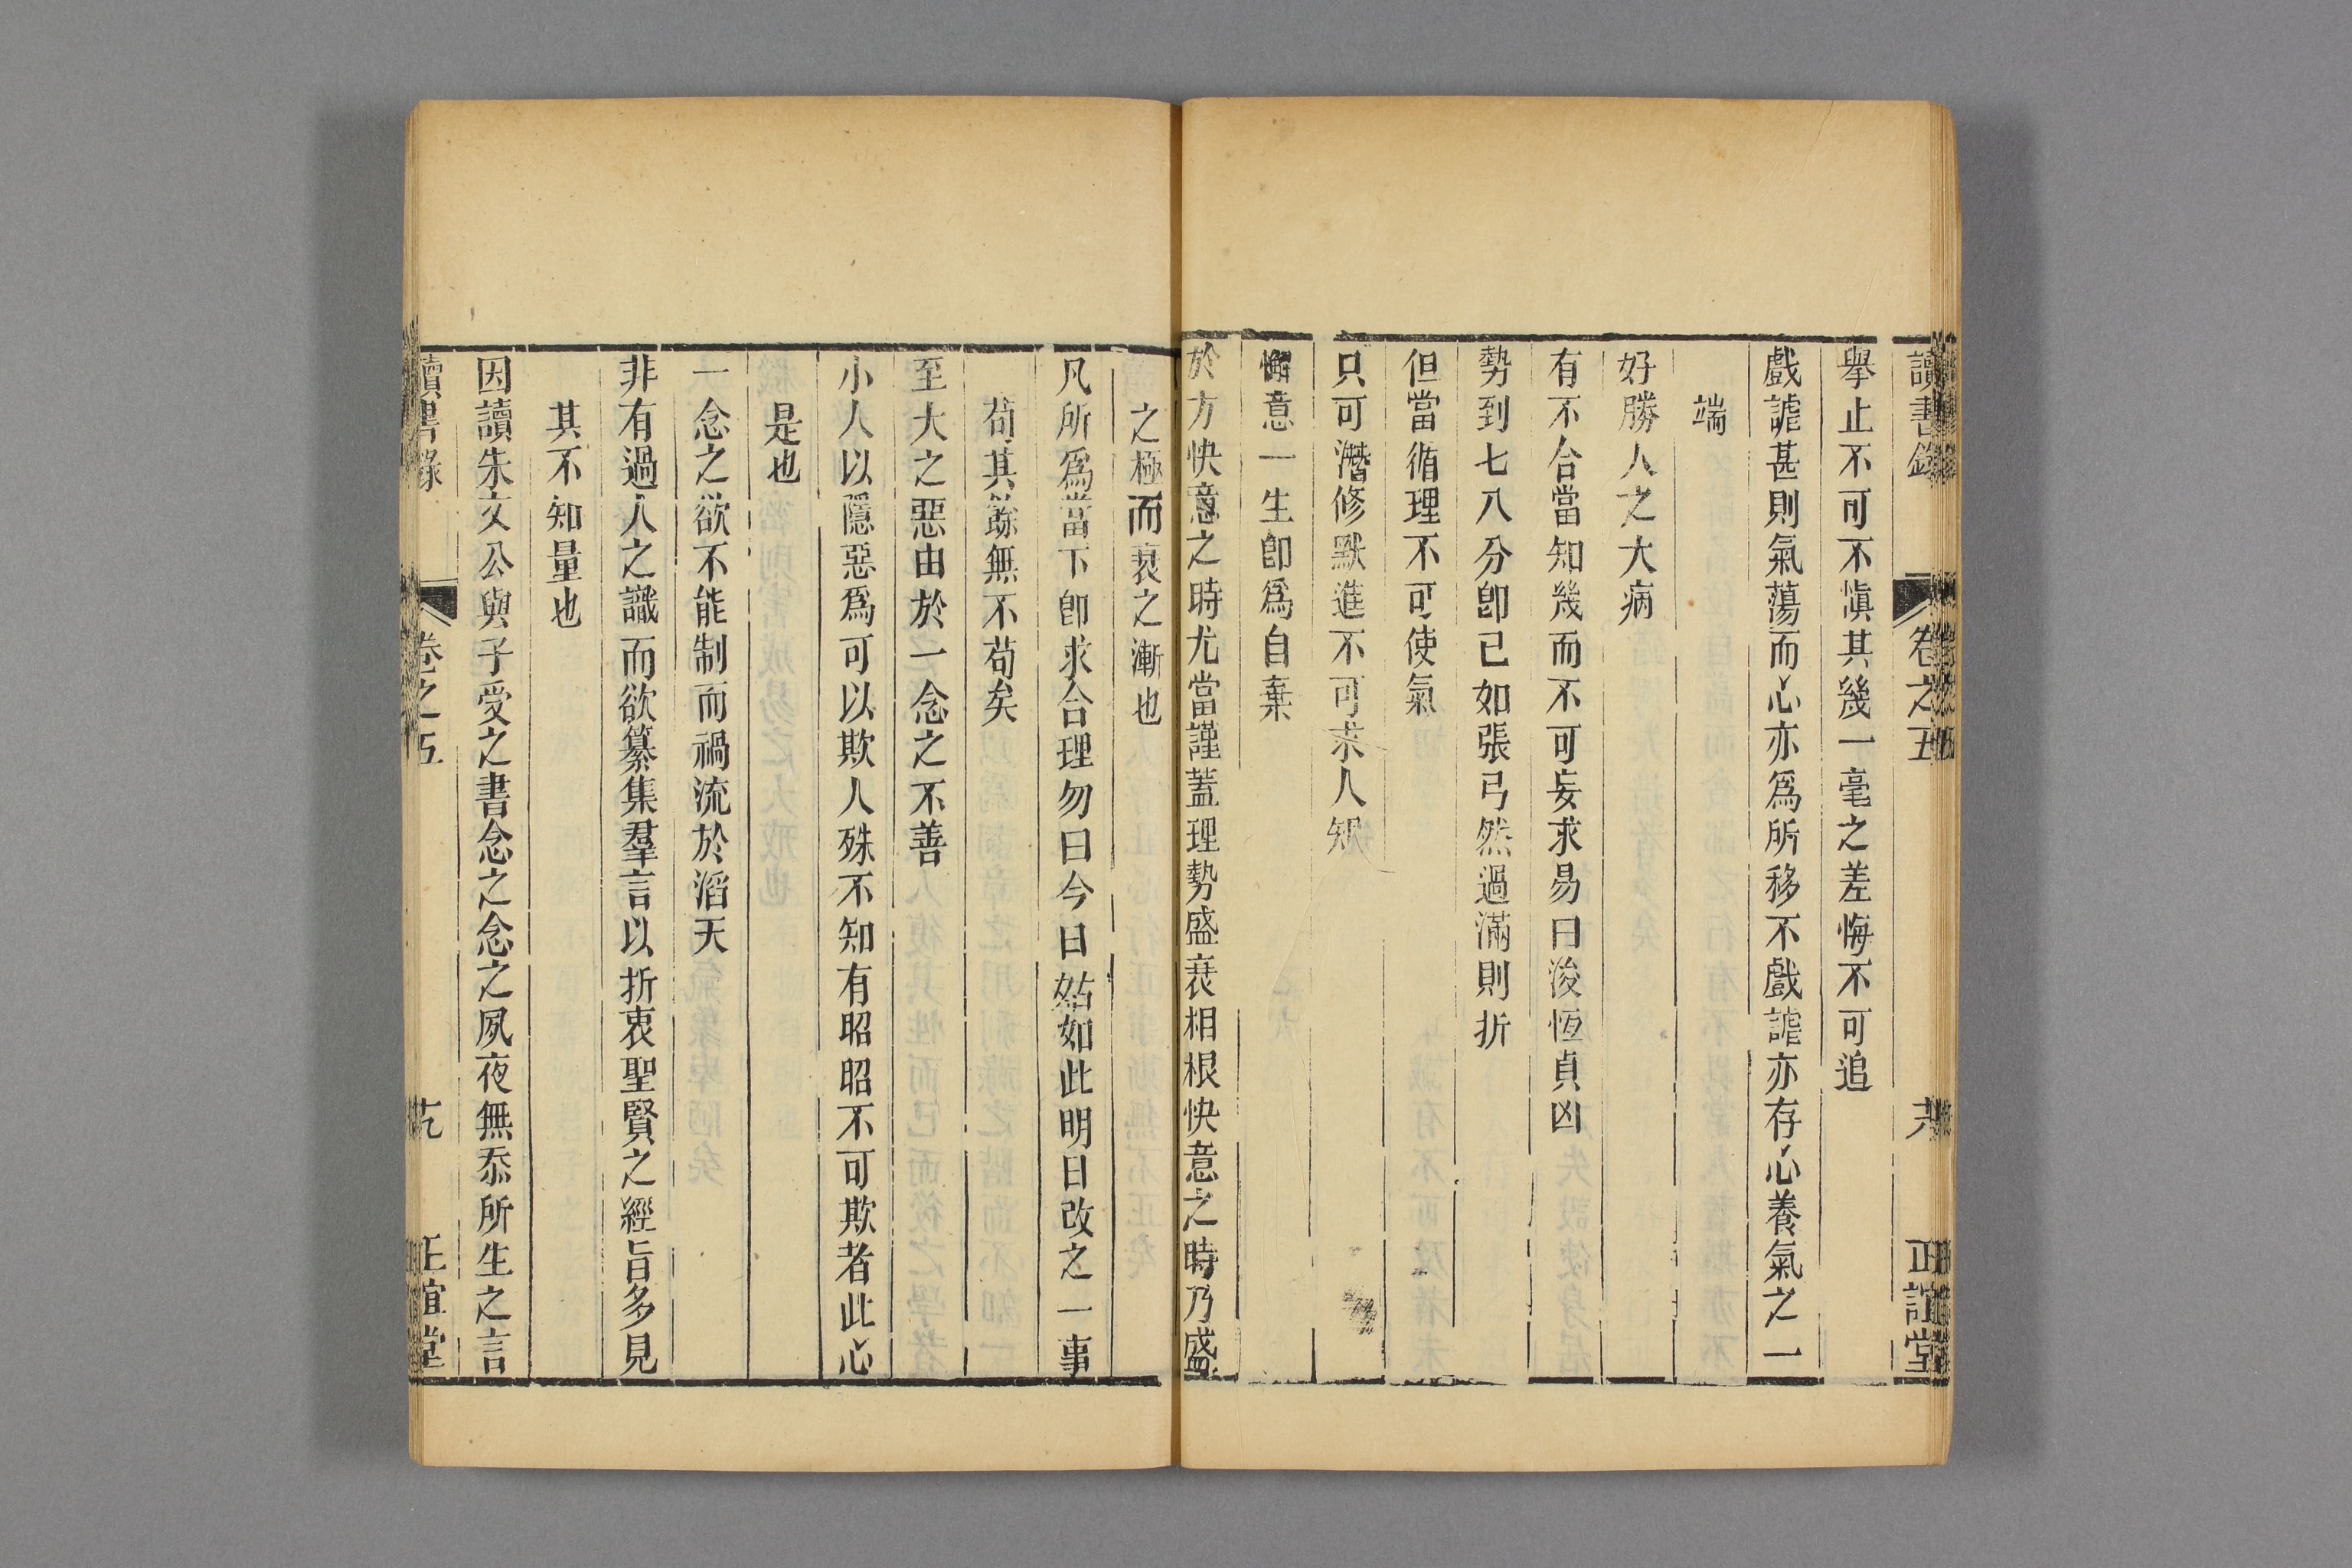 讀書錄 卷之五 六 正誼堂
舉止不可不愼其幾一毫之差悔不可追
戲謔甚則氣蕩而心亦爲所移不戲謔亦存心養氣之一
端
好勝人之大病
有不合當知幾而不可妄求易曰浚恆貞凶
勢到七八分卽已如張弓然過滿則折
但當循理不可使氣
只可潛修默進不可求人知
懈意一生卽爲自棄
於方快意之時尤當謹蓋理勢盛衰相根快意之時乃盛
之極而衰之漸也
凡所爲當下卽求合理勿曰今日姑如此明日改之一事
苟其餘無不苟矣
至大之惡由於一念之不善
小人以隱惡爲可以欺人殊不知有昭昭不可欺者此心
是也
一念之欲不能制而禍流於滔天
非有過人之識而欲纂集羣言以折衷聖賢之經旨多見
其不知量也
因讀朱文公與子受之書念之念之夙夜無忝所生之言
讀書錄 卷之五 正誼堂